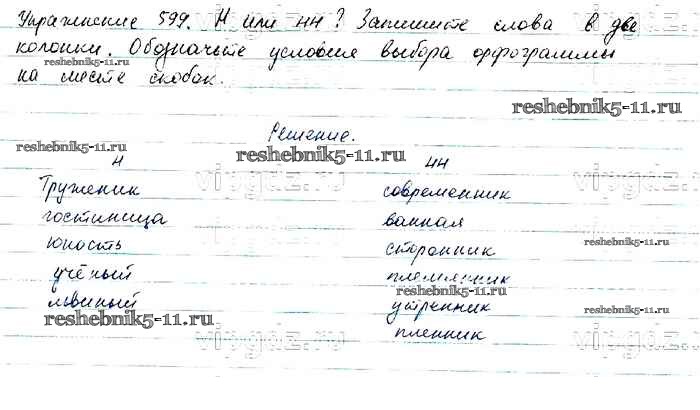 Упражнение 599. Н или НН? Запишите слова в две
колонки. Обозначьте условия выбора орфограммы
на месте скобок.
reshebnik5-11.ru
reshebnik5-11.ru
Решение.
reshebnik5-11.ru
reshebnik5-11.ru
vipgdz.ru
vipgdz.ru
Н НН
Труженик современник
гостиница ванная
юность сторонник
reshebnik5-11.ru
учёный племянник
reshebnik5-11.ru
львиный утренник
reshebnik5-11.ru
reshebnik5-11.ru
пленник
vipgdz.ru
vipgdz.ru